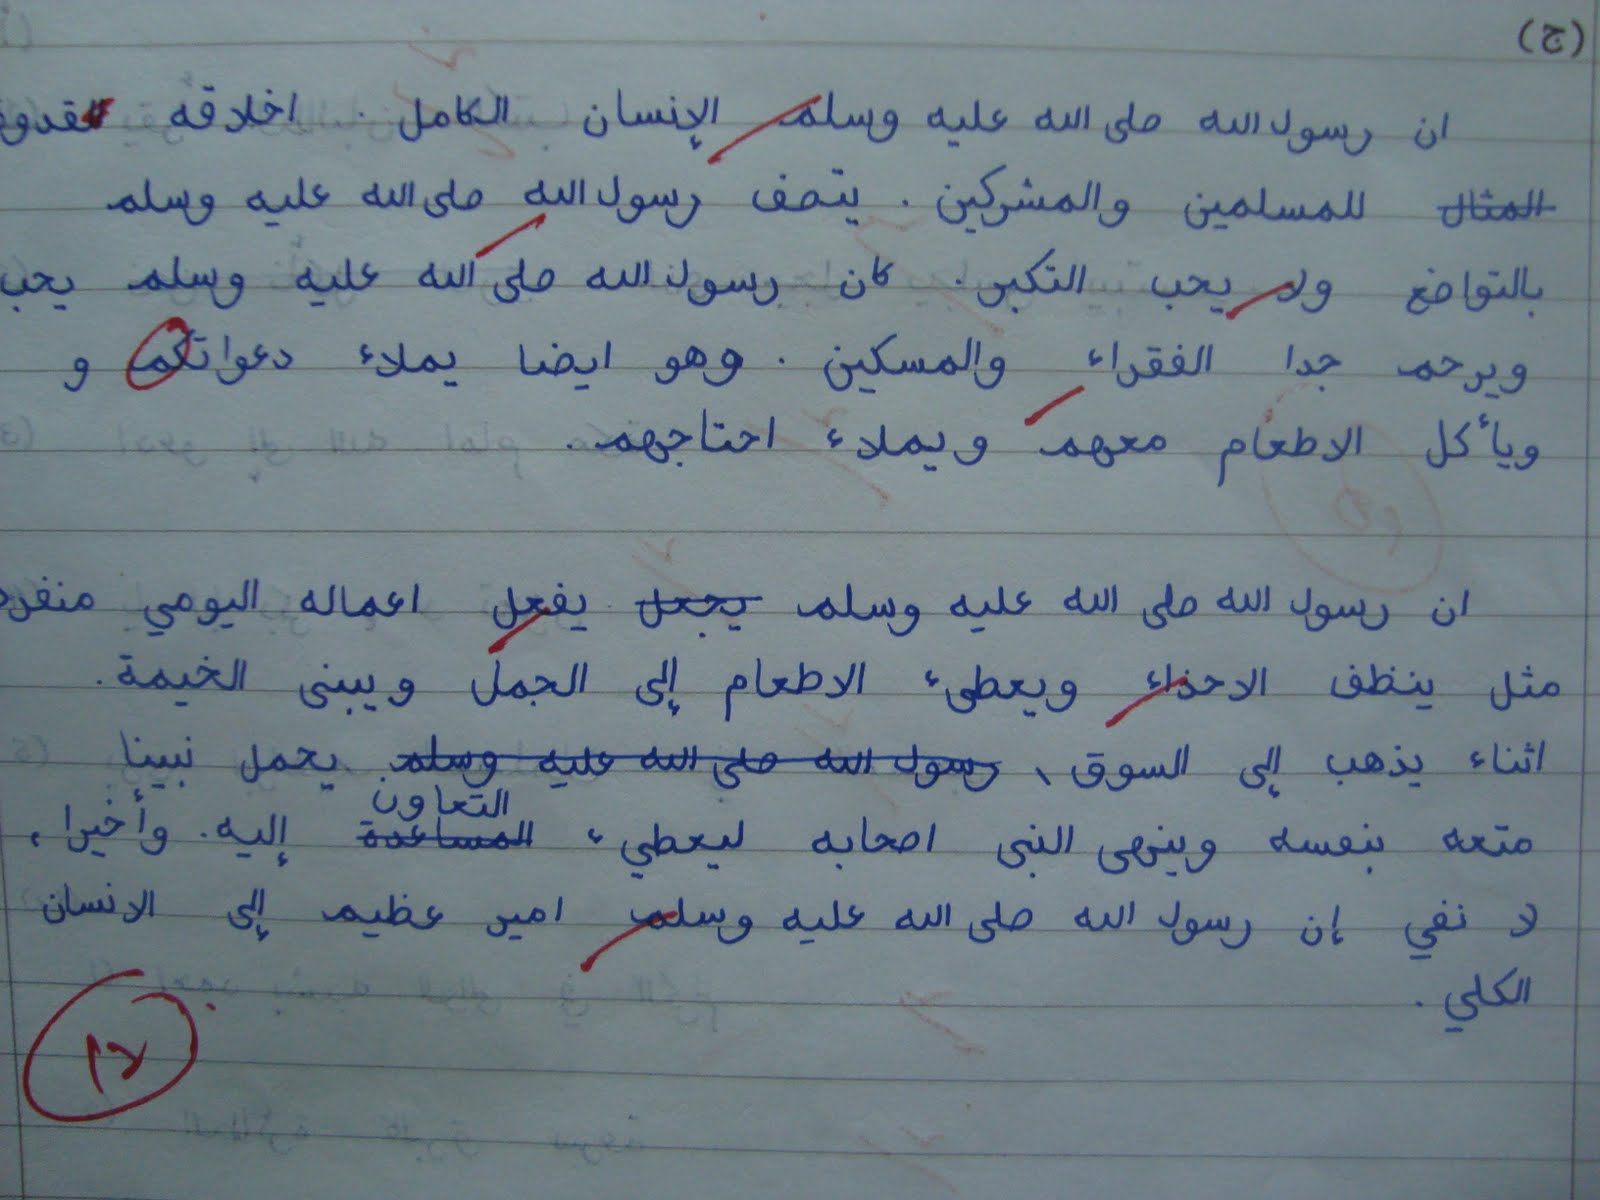 (ج)
ان رسول الله صلى الله عليه وسلم الإنسان الكامل . اخلاقه القدوة
المثال للمسلمين والمشركين . يتصف رسول الله صلى الله عليه وسلم
بالتواضع ولا يحب التكبر . كان رسول الله صلى الله عليه وسلم يحب
ويرحم جدا الفقراء والمسكين . وهو ايضا يملاء دعواتكم و
ويأكل الاطعام معهم ويملاء احتاجهم .
ان رسول الله صلى الله عليه وسلم يجعل يفعل اعماله اليومي منفرد
مثل ينظف الاحذاء ويعطىء الاطعام إلى الجمل ويبنى الخيمة .
اثناء يذهب إلى السوق ، رسول الله صلى الله عليه وسلم يحمل نبينا
التعاون
متعه بنفسه وينهى النبى اصحابه ليعطيء المساعدة إليه . وأخيرا ،
لا نفي إن رسول الله صلى الله عليه وسلم امير عظيم إلى الانسان
الكلي .